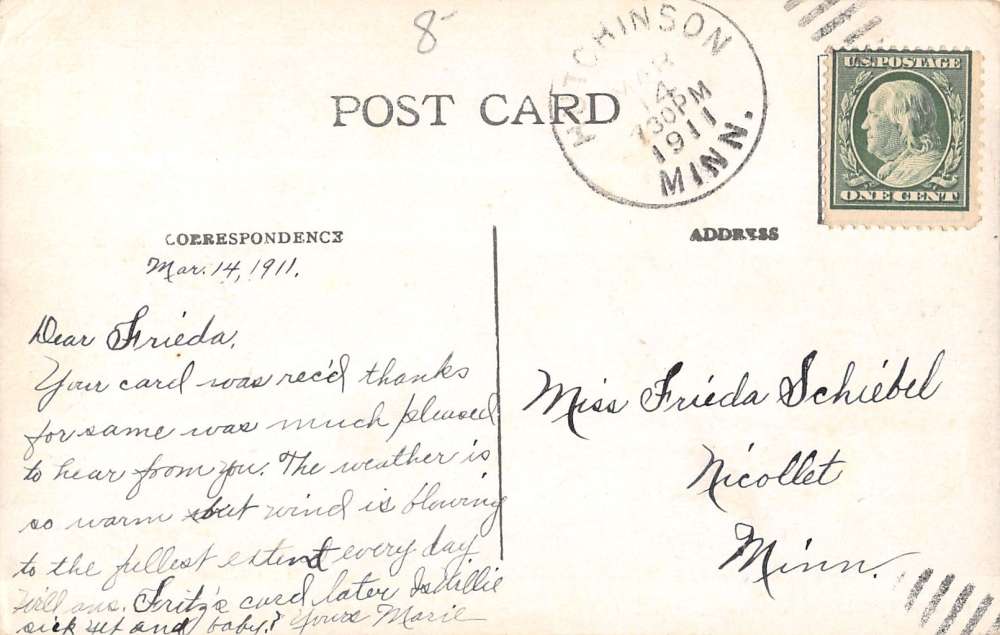 8-
POST CARD
HUTCHINSON
MAR
14
730PM
1911
MINN.
U.S. POSTAGE
ONE CENT
CORRESPONDENCE
ADDRESS
Mar. 14, 1911.
Dear Frieda,
Your card was rec'd thanks
for same was much pleased
to hear from you. The weather is
so warm but wind is blowing
to the fullest extent every day
Will ans. Fritz's card later Is Willie
sick yet and baby? Yours Marie
Miss Frieda Schiebel
Nicollet
Minn.